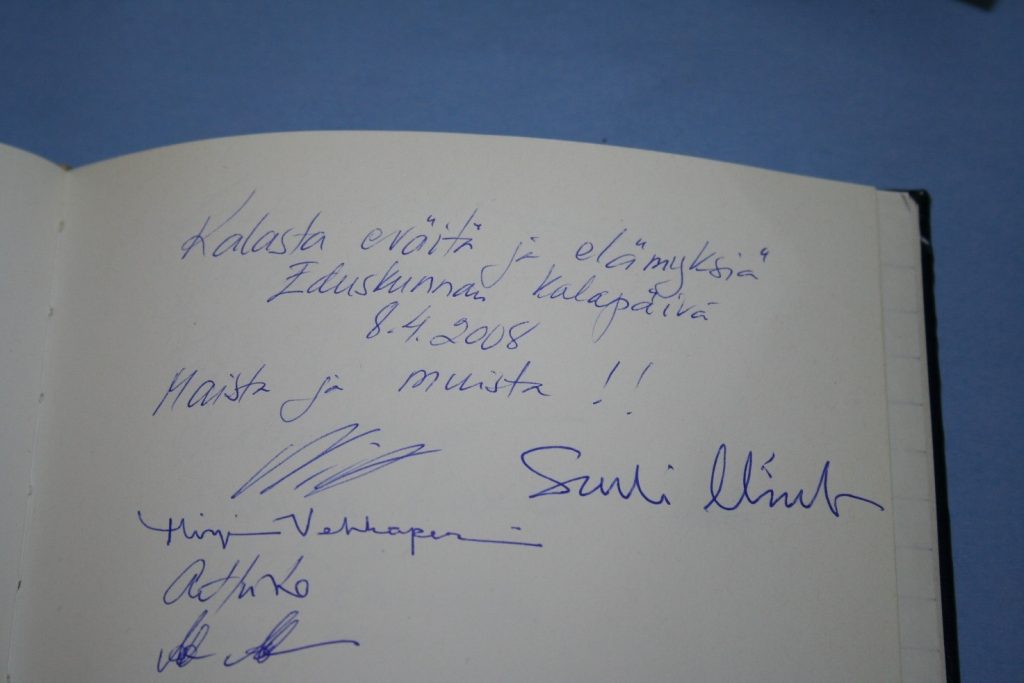 Kalasta eväitä ja elämyksiä
Eduskunnan Kalapäivä
8.4.2008
Maista ja muista !!
Mirja Vehkaperä